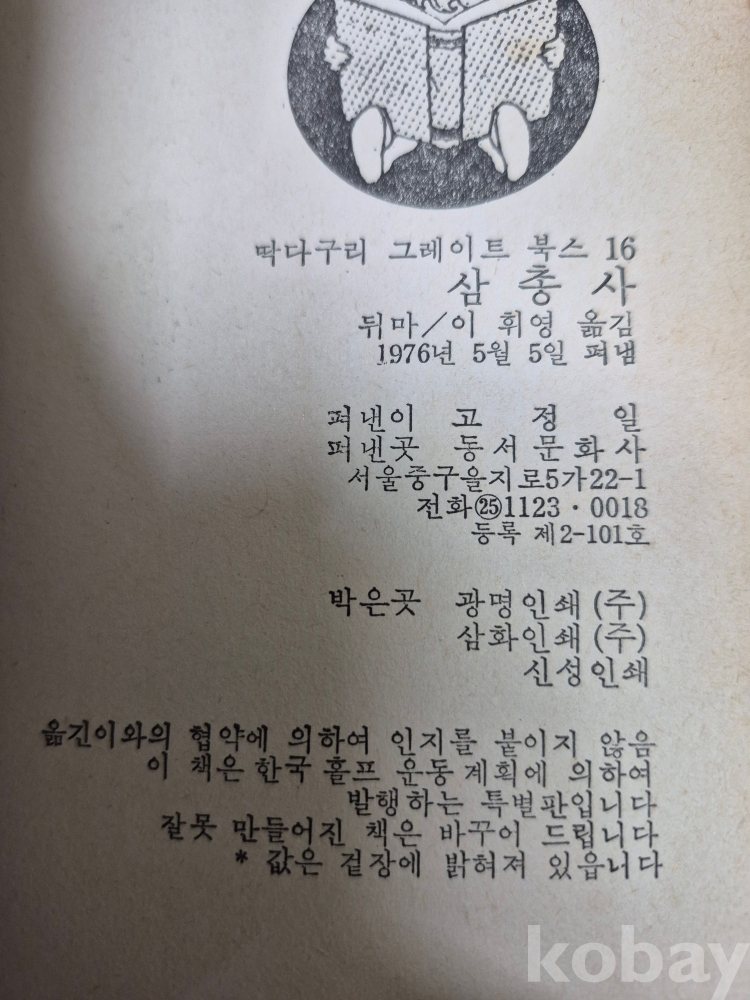 딱다구리 그레이트 북스 16
삼총사
뒤마/이 휘영 옮김
1976년 5월 5일 펴냄
펴낸이 고 정 일
펴낸곳 동서문화사
서울중구을지로5가22-1
전화㉕1123·0018
등록 제2-101호
박은곳 광명인쇄(주)
삼화인쇄(주)
신성인쇄
옮긴이와의 협약에 의하여 인지를 붙이지 않음
이 책은 한국 홀프 운동계획에 의하여
발행하는 특별판입니다
잘못 만들어진 책은 바꾸어 드립니다
* 값은 겉장에 밝혀져 있읍니다
kobay